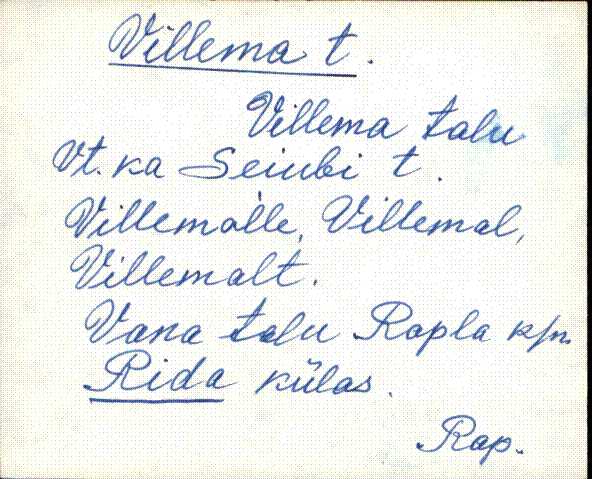 Villema t.
Villema talu
Vt. ka Seiubi t.
Villemalle, Villemal,
Villemalt.
Vana talu Rapla khn.
Rida külas.
Rap.